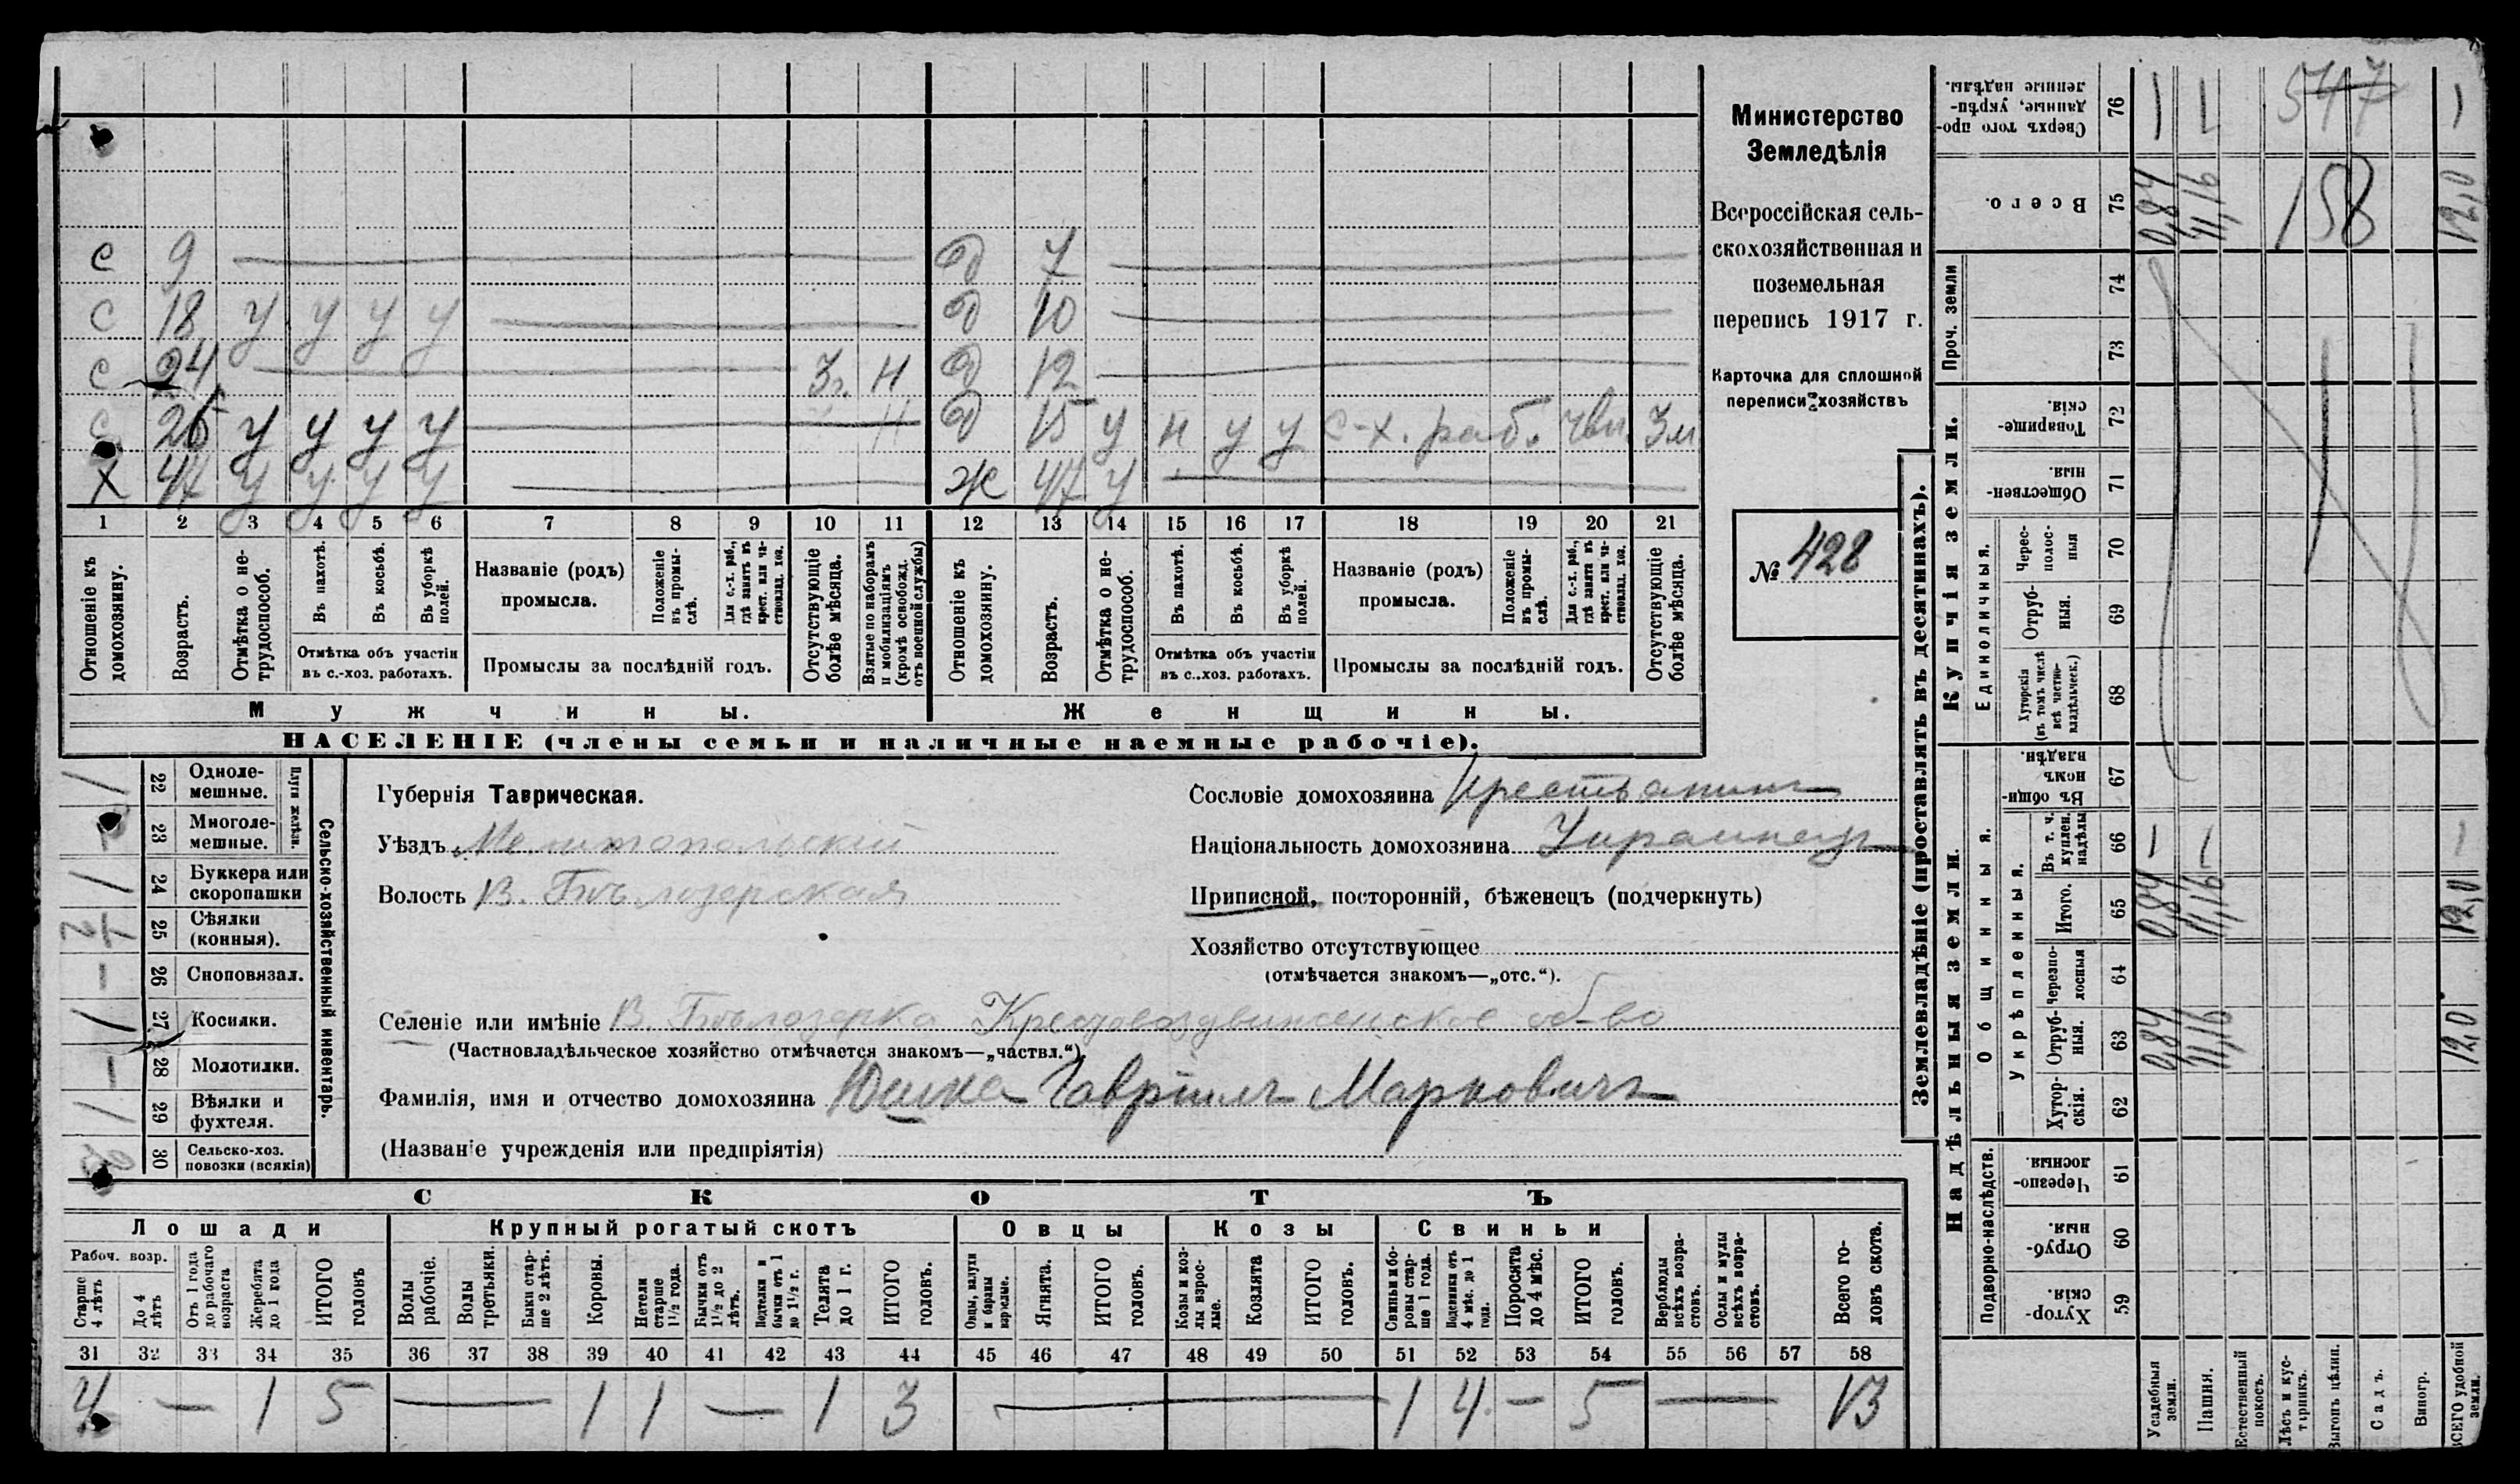 с 9 д 7
с 18 у у у у д 10
с 24 3 г. н д 12
с 26 у у у у д 15 у н у у с-х. раб. 3 м
х 47 у у у у ж 47 у
1 2 3 4 5 6 7 8 9 10 11 12 13 14 15 16 17 18 19 20 21
Отношеніе къ домохозяину.
Возрастъ.
Отмѣтка о не-трудоспособ.
Въ пахотѣ.
Въ косьбѣ.
Въ уборкѣ полей.
Отмѣтка объ участіи
въ с.-хоз. работахъ.
Названіе (родъ)
промысла.
Положеніе въ промы-слѣ.
Для с.-х. раб., гдѣ занятъ въ крест. или ча-стновлад. хоз.
Промыслы за послѣдній годъ.
Отсутствующіе болѣе мѣсяца.
Взятые по наборамъ и мобилизаціямъ (кромѣ освобожд. отъ военной службы)
Отношеніе къ домохозяину.
Возрастъ.
Отмѣтка о не-трудоспособ.
Въ пахотѣ.
Въ косьбѣ.
Въ уборкѣ полей.
Отмѣтка объ участіи
въ с..хоз. работахъ.
Названіе (родъ)
промысла.
Положеніе въ промы-слѣ.
Для с.-х. раб., гдѣ занята въ крест. или ча-стновлад. хоз.
Промыслы за послѣдній годъ.
Отсутствующіе болѣе мѣсяца.
Мужчины. Женщины.
НАСЕЛЕНІЕ (члены семьи и наличные наемные рабочіе).
Министерство
Земледѣлія
Всероссійская сель-
скохозяйственная и
поземельная
перепись 1917 г.
Карточка для сплошной
переписи хозяйствъ
№ 428
Сельско-хозяйственный инвентарь.
Плуги желѣзн.
22 Одноле-мешные. 1
23 Многоле-мешные. 2
24 Буккера или скоропашки 1
25 Сѣялки (конныя). 1/2
26 Сноповязал. —
27 Косилки. 1
28 Молотилки. —
29 Вѣялки и фухтеля. 1
30 Сельско-хоз. повозки (всякія)
Губернія Таврическая.
Уѣздъ Мелитопольскій
Волость В. Бѣлозерская
Сословіе домохозяина Крестьянинъ
Національность домохозяина Украинецъ
Приписной, посторонній, бѣженецъ (подчеркнуть)
Хозяйство отсутствующее
(отмѣчается знакомъ—„отс.“).
Селеніе или имѣніе В. Бѣлозерка Крестовоздвиженское об-во
(Частновладѣльческое хозяйство отмѣчается знакомъ—„частвл.“).
Фамилія, имя и отчество домохозяина Юшка Гавріилъ Марковичъ
(Названіе учрежденія или предпріятія)
СКОТЪ
Лошади Крупный рогатый скотъ Овцы Козы Свиньи
Рабоч. возр.
Старше 4 лѣтъ
До 4 лѣтъ
Отъ 1 года до рабочаго возраста
Жеребята до 1 года
ИТОГО головъ
Волы рабочіе.
Волы третьяки.
Быки стар-ше 2 лѣтъ.
Коровы.
Нетели старше 1½ года.
Бычки отъ 1½ до 2 лѣтъ.
Подтелки и бычки отъ 1 до 1½ г.
Телята до 1 г.
ИТОГО головъ.
Овцы, валухи и бараны взрослые.
Ягнята.
ИТОГО головъ.
Козы и коз-лы взрос-лые.
Козлята
ИТОГО головъ.
Свиньи и бо-ровы стар-ше 1 года.
Подсвинки отъ 4 мѣс. до 1 года.
Поросята до 4 мѣс.
ИТОГО головъ.
Верблюды всѣхъ возра-стовъ.
Ослы и мулы всѣхъ возра-стовъ.
Всего го-ловъ скота.
31 32 33 34 35 36 37 38 39 40 41 42 43 44 45 46 47 48 49 50 51 52 53 54 55 56 57 58
4 — 1 5 — 1 1 — 1 3 — 1 4 — 5 — 13
Землевладѣніе (проставлять въ десятинахъ).
Сверхъ того про-данные, укрѣп-ленные надѣлы. 76 — — 547 —
Всего. 75 0,84 11,16 158 12,0
Проч. земли
74
73
Купчія земли.
Товарище-скія. 72
Обществен-ныя. 71
Единоличныя.
Черес-полос-ныя 70
Отруб-ныя. 69
Хуторскія (въ томъ числѣ всѣ частно-владѣльческ.) 68
Надѣльныя земли.
Общинныя.
Въ общин-номъ владѣн. 67
Укрѣпленныя.
Въ т. ч. куплен. надѣлы 66 — — —
Итого. 65 0,84 11,16 12,0
Черезпо-лосныя 64
Отруб-ныя. 63 0,84 11,16 12,0
Хутор-скія. 62
Подворно-наслѣдств.
Черезпо-лосныя. 61
Отруб-ныя. 60
Хутор-скія. 59
Усадебныя земли.
Пашня.
Естественный покосъ.
Лѣсъ и кус-тарникъ.
Выгонъ цѣлин.
Садъ.
Виногр.
ВСЕГО удобной земли.